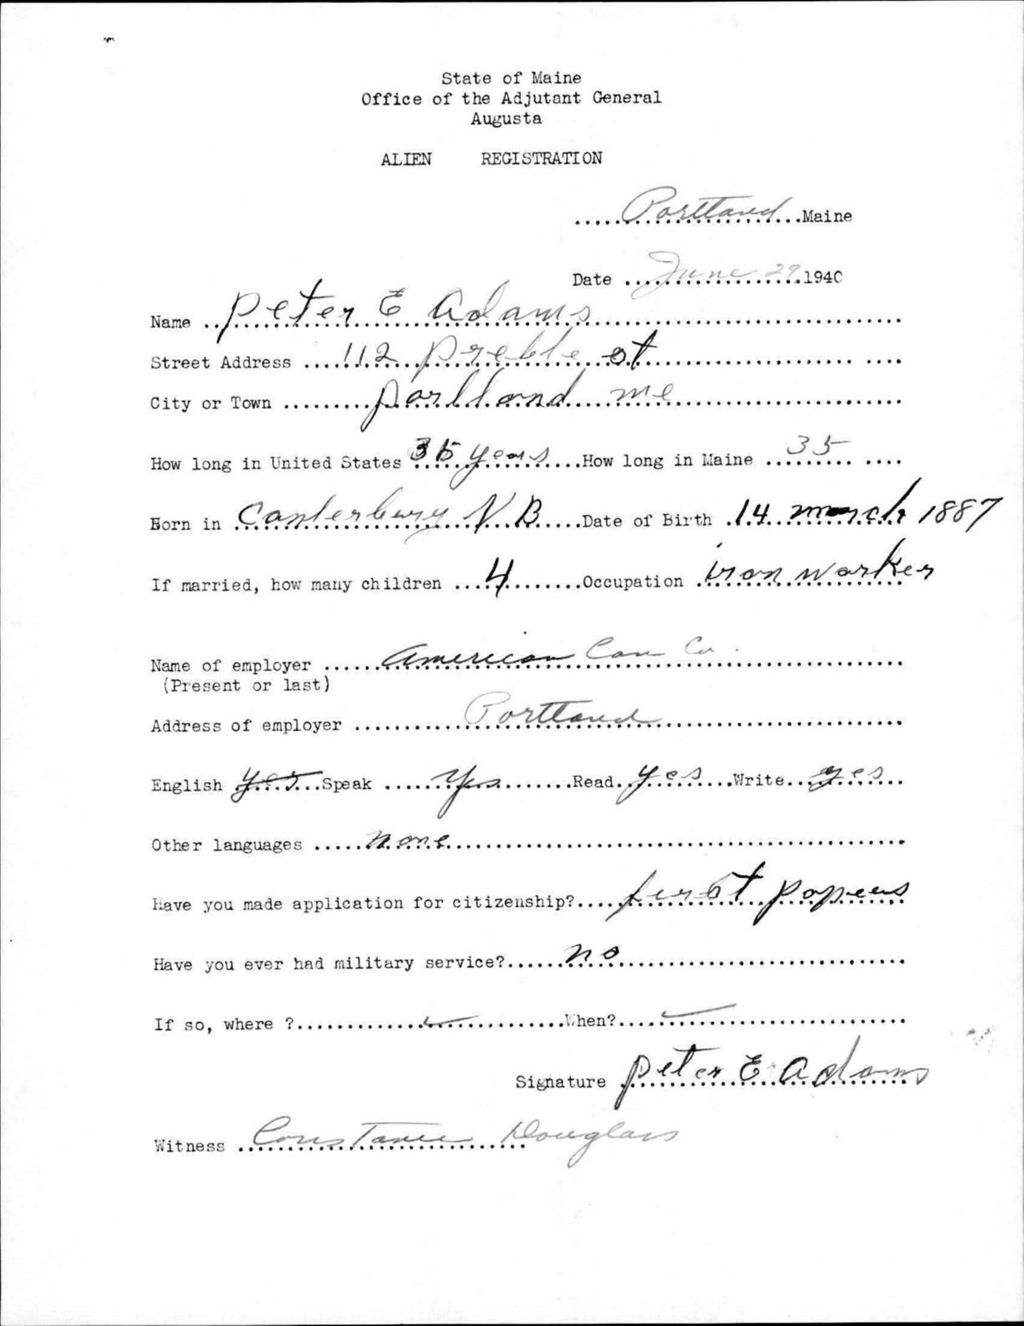 State of Maine
Office of the Adjutant General
Augusta
ALIEN REGISTRATION
.....Portland.....Maine
Date ...June 29.1940
Name ..Peter E Adams.....
Street Address ....112 Preble st.....
City or Town .........Portland me.....
How long in United States 35 years.....How long in Maine ...35.....
Born in .Canterbury N B.....Date of Birth .14 march 1887
If married, how many children ...4.........Occupation .iron worker
Name of employer ......American Can Co.
(Present or last)
Address of employer ..........Portland.....
English yes...Speak ......Yes.........Read.yes...Write..yes..
Other languages .....none.....
Have you made application for citizenship?.....first papers
Have you ever had military service?......no.....
If so, where ?.............✓.............When?....✓.....
Signature Peter E Adams
Witness ..Constance Douglass